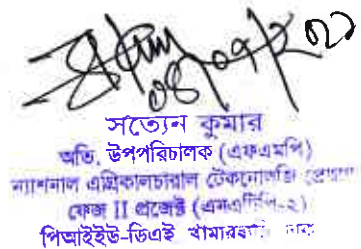 সত্যেন কুমার
অতি. উপপরিচালক (এফএমপি)
ন্যাশনাল এগ্রিকালচারাল টেকনোলজি
ফেজ II প্রজেক্ট (এনএটিপি-২)
পিআইইউ-ডিএই খামারবাড়ী